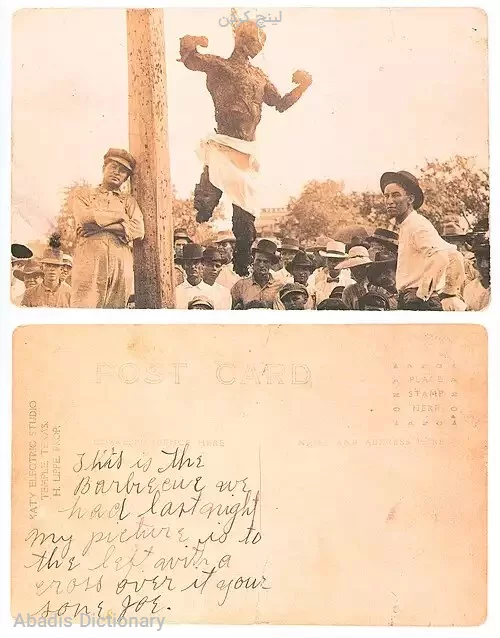 لینچ کردن
POST CARD
PLACE
STAMP
HERE
CORRESPONDENCE HERE
NAME AND ADDRESS HERE
KATY ELECTRIC STUDIO
TEMPLE, TEXAS.
H. LIPPE, PROP.
This is the
Barbecue we
had last night
my picture is to
the left with a
cross over it your
sone Joe.
Abadis Dictionary